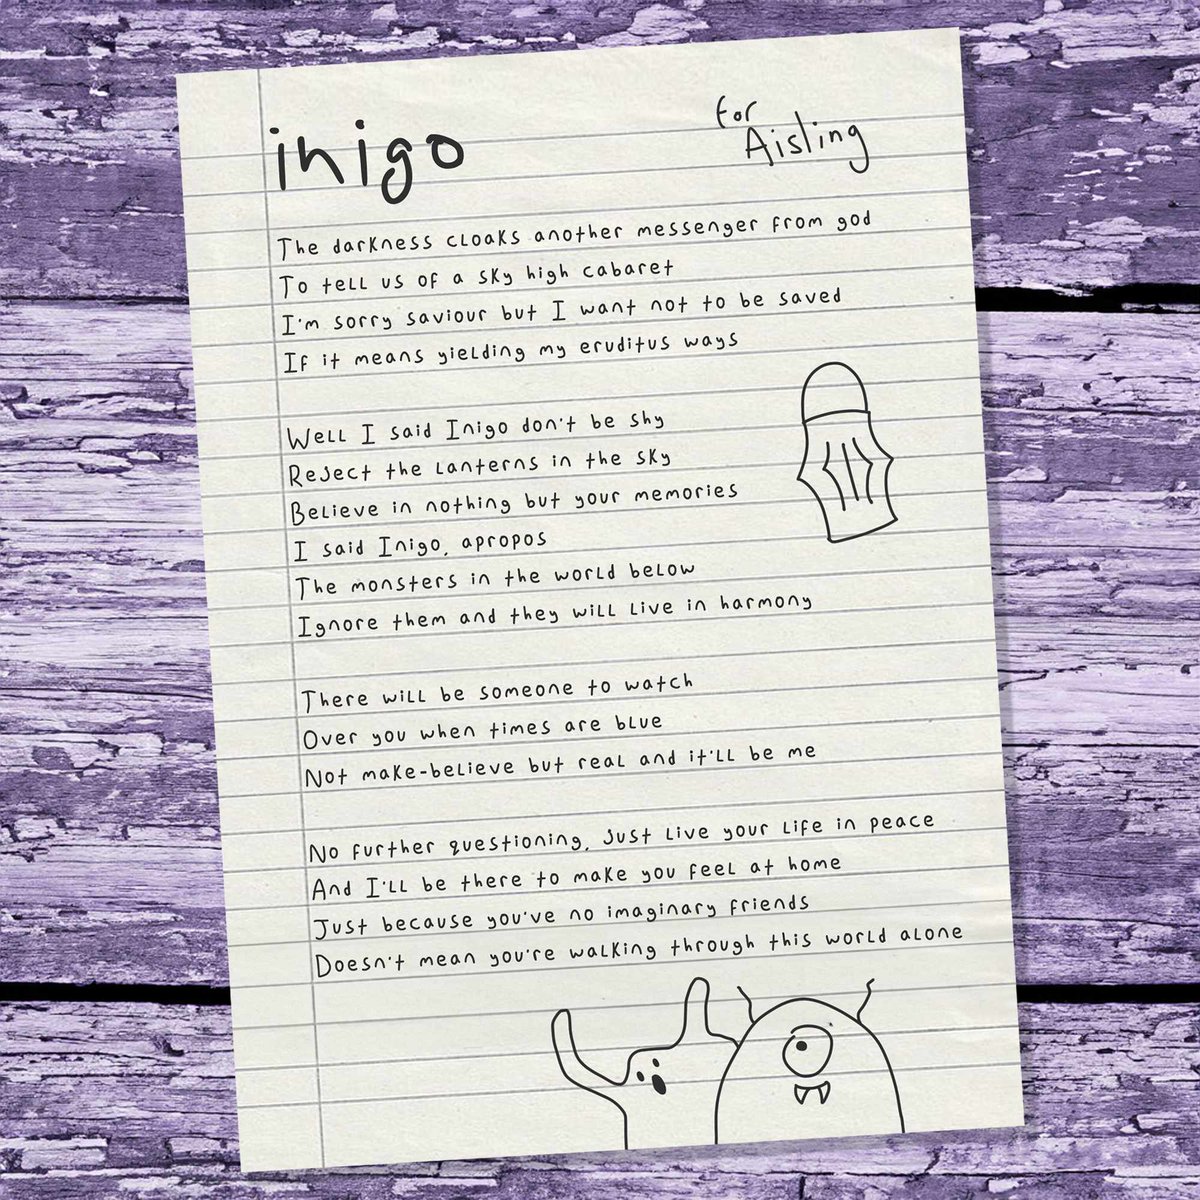 inigo
for
Aisling
The darkness cloaks another messenger from god
To tell us of a sky high cabaret
I'm sorry saviour but I want not to be saved
If it means yielding my eruditus ways
Well I said Inigo don't be shy
Reject the lanterns in the sky
Believe in nothing but your memories
I said Inigo, apropos
The monsters in the world below
Ignore them and they will live in harmony
There will be someone to watch
Over you when times are blue
Not make-believe but real and it'll be me
No further questioning, just live your life in peace
And I'll be there to make you feel at home
Just because you've no imaginary friends
Doesn't mean you're walking through this world alone